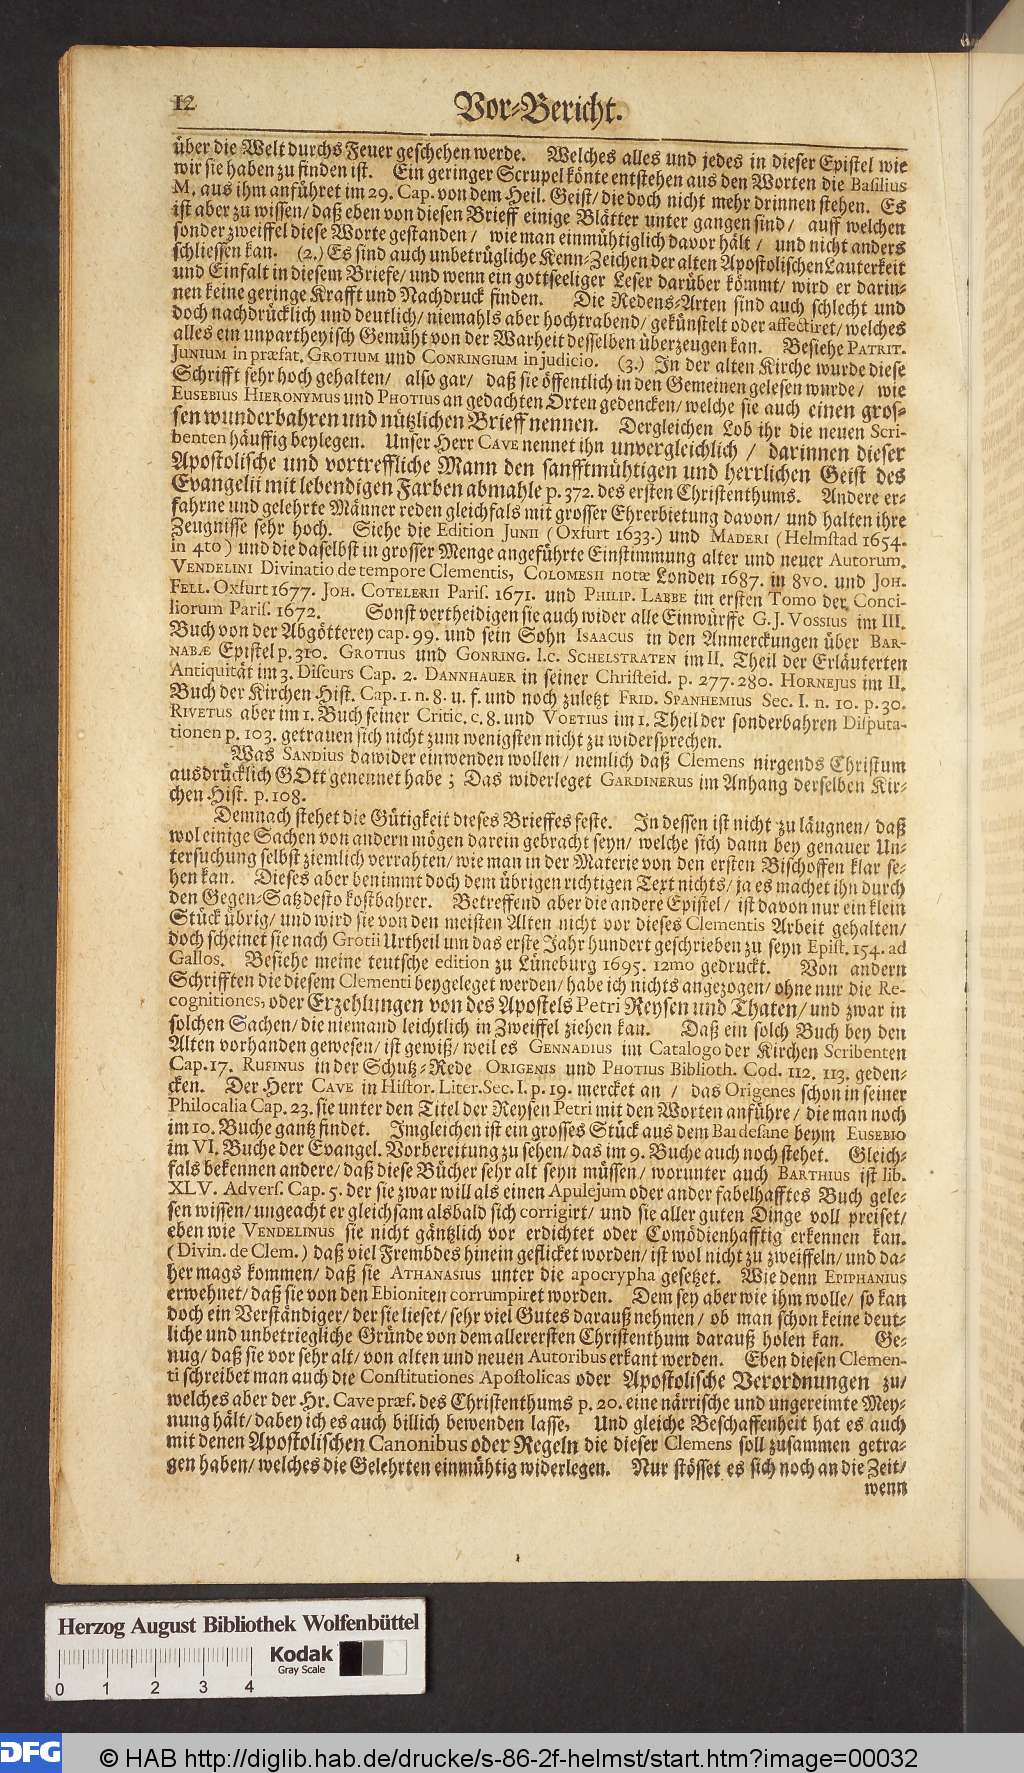 12
Vor-Bericht.
über die Welt durchs Feuer geschehen werde. Welches alles und jedes in dieser Epistel wie
wir sie haben zu finden ist. Ein geringer Scrupel könte entstehen aus den Worten die Basilius
M. aus ihm anführet im 29. Cap. von dem Heil. Geist/ die doch nicht mehr drinnen stehen. Es
ist aber zu wissen/ daß eben von diesen Brieff einige Blätter unter gangen sind/ auff welchen
sonder zweiffel diese Worte gestanden/ wie man einmühtiglich davor hält/ und nicht anders
schliessen kan. (2.) Es sind auch unbetrügliche Kenn-Zeichen der alten Apostolischen Lauterkeit
und Einfalt in diesem Briefe/ und wenn ein gottseeliger Leser darüber kömmt/ wird er darin-
nen keine geringe Krafft und Nachdruck finden. Die Redens-Arten sind auch schlecht und
doch nachdrücklich und deutlich/ niemahls aber hochtrabend/ gekünstelt oder affectiret/ welches
alles ein unpartheyisch Gemüht von der Warheit desselben überzeugen kan. Besiehe PATRIT.
JUNIUM in præfat. GROTIUM und CONRINGIUM in judicio. (3.) In der alten Kirche wurde diese
Schrifft sehr hoch gehalten/ also gar/ daß sie öffentlich in den Gemeinen gelesen wurde/ wie
EUSEBIUS HIERONYMUS und PHOTIUS an gedachten Orten gedencken/ welche sie auch einen gros-
sen wunderbahren und nützlichen Brieff nennen. Dergleichen Lob ihr die neuen Scri-
benten häuffig beylegen. Unser Herr CAVE nennet ihn unvergleichlich / darinnen dieser
Apostolische und vortreffliche Mann den sanfftmühtigen und herrlichen Geist des
Evangelii mit lebendigen Farben abmahle p. 372. des ersten Christenthums. Andere er-
fahrne und gelehrte Männer reden gleichfals mit grosser Ehrerbietung davon/ und halten ihre
Zeugnisse sehr hoch. Siehe die Edition JUNII (Oxfurt 1633.) und MADERI (Helmstad 1654.
in 4to) und die daselbst in grosser Menge angeführte Einstimmung alter und neuer Autorum.
VENDELINI Divinatio de tempore Clementis, COLOMESII notæ Londen 1687. in 8vo. und JOH.
FELL. Oxfurt 1677. JOH. COTELERII Paris. 1671. und PHILIP. LABBE im ersten Tomo der Conci-
liorum Paris. 1672. Sonst vertheidigen sie auch wider alle Einwürffe G. J. VOSSIUS im III.
Buch von der Abgötterey cap. 99. und sein Sohn ISAACUS in den Anmerckungen über BAR-
NABÆ Epistel p. 310. GROTIUS und GONRING. l.c. SCHELSTRATEN im II. Theil der Erläuterten
Antiquität im 3. Discurs Cap. 2. DANNHAUER in seiner Christeid. p. 277. 280. HORNEJUS im II.
Buch der Kirchen Hist. Cap. 1. n. 8. u. f. und noch zuletzt FRID. SPANHEMIUS Sec. I. n. 10. p. 30.
RIVETUS aber im 1. Buch seiner Critic. c. 8. und VOETIUS im 1. Theil der sonderbahren Disputa-
tionen p. 103. getrauen sich nicht zum wenigsten nicht zu widersprechen.
Was SANDIUS dawider einwenden wollen/ nemlich daß Clemens nirgends Christum
ausdrücklich GOtt genennet habe; Das widerleget GARDINERUS im Anhang derselben Kir-
chen Hist. p. 108.
Demnach stehet die Gütigkeit dieses Brieffes feste. In dessen ist nicht zu läugnen/ daß
wol einige Sachen von andern mögen darein gebracht seyn/ welche sich dann bey genauer Un-
tersuchung selbst ziemlich verrahten/ wie man in der Materie von den ersten Bischoffen klar se-
hen kan. Dieses aber benimmt doch dem übrigen richtigen Text nichts/ ja es machet ihn durch
den Gegen-Satz desto kostbahrer. Betreffend aber die andere Epistel/ ist davon nur ein klein
Stück übrig/ und wird sie von den meisten Alten nicht vor dieses Clementis Arbeit gehalten/
doch scheinet sie nach Grotii Urtheil um das erste Jahr hundert geschrieben zu seyn Epist. 154. ad
Gallos. Besiehe meine teutsche edition zu Lüneburg 1695. 12mo gedruckt. Von andern
Schrifften die diesem Clementi beygeleget werden/ habe ich nichts angezogen/ ohne nur die Re-
cognitiones, oder Erzehlungen von des Apostels Petri Reysen und Thaten/ und zwar in
solchen Sachen/ die niemand leichtlich in Zweiffel ziehen kan. Daß ein solch Buch bey den
Alten vorhanden gewesen/ ist gewiß/ weil es GENNADIUS im Catalogo der Kirchen Scribenten
Cap. 17. RUFINUS in der Schutz-Rede ORIGENIS und PHOTIUS Biblioth. Cod. 112. 113. geden-
cken. Der Herr CAVE in Histor. Liter. Sec. I. p. 19. mercket an / das Origenes schon in seiner
Philocalia Cap. 23. sie unter den Titel der Reysen Petri mit den Worten anführe/ die man noch
im 10. Buche gantz findet. Imgleichen ist ein grosses Stück aus dem Bardesane beym EUSEBIO
im VI. Buche der Evangel. Vorbereitung zu sehen/ das im 9. Buche auch noch stehet. Gleich-
fals bekennen andere/ daß diese Bücher sehr alt seyn müssen/ worunter auch BARTHIUS ist lib.
XLV. Advers. Cap. 5. der sie zwar will als einen Apulejum oder ander fabelhafftes Buch gele-
sen wissen/ ungeacht er gleichsam alsbald sich corrigirt/ und sie aller guten Dinge voll preiset/
eben wie VENDELINUS sie nicht gäntzlich vor erdichtet oder Comödienhafftig erkennen kan.
(Divin. de Clem.) daß viel Frembdes hinein geflicket worden/ ist wol nicht zu zweiffeln/ und da-
her mags kommen/ daß sie ATHANASIUS unter die apocrypha gesetzet. Wie denn EPIPHANIUS
erwehnet/ daß sie von den Ebioniten corrumpiret worden. Dem sey aber wie ihm wolle/ so kan
doch ein Verständiger/ der sie lieset/ sehr viel Gutes darauß nehmen/ ob man schon keine deut-
liche und unbetriegliche Gründe von dem allerersten Christenthum darauß holen kan. Ge-
nug/ daß sie vor sehr alt/ von alten und neuen Autoribus erkant werden. Eben diesen Clemen-
ti schreibet man auch die Constitutiones Apostolicas oder Apostolische Verordnungen zu/
welches aber der Hr. Cave præf. des Christenthums p. 20. eine närrische und ungereimte Mey-
nung hält/ dabey ich es auch billich bewenden lasse, Und gleiche Beschaffenheit hat es auch
mit denen Apostolischen Canonibus oder Regeln die dieser Clemens soll zusammen getra-
gen haben/ welches die Gelehrten einmühtig widerlegen. Nur stösset es sich noch an die Zeit/
wenn
Herzog August Bibliothek Wolfenbüttel
Kodak
Gray Scale
0 1 2 3 4
DFG
© HAB http://diglib.hab.de/drucke/s-86-2f-helmst/start.htm?image=00032